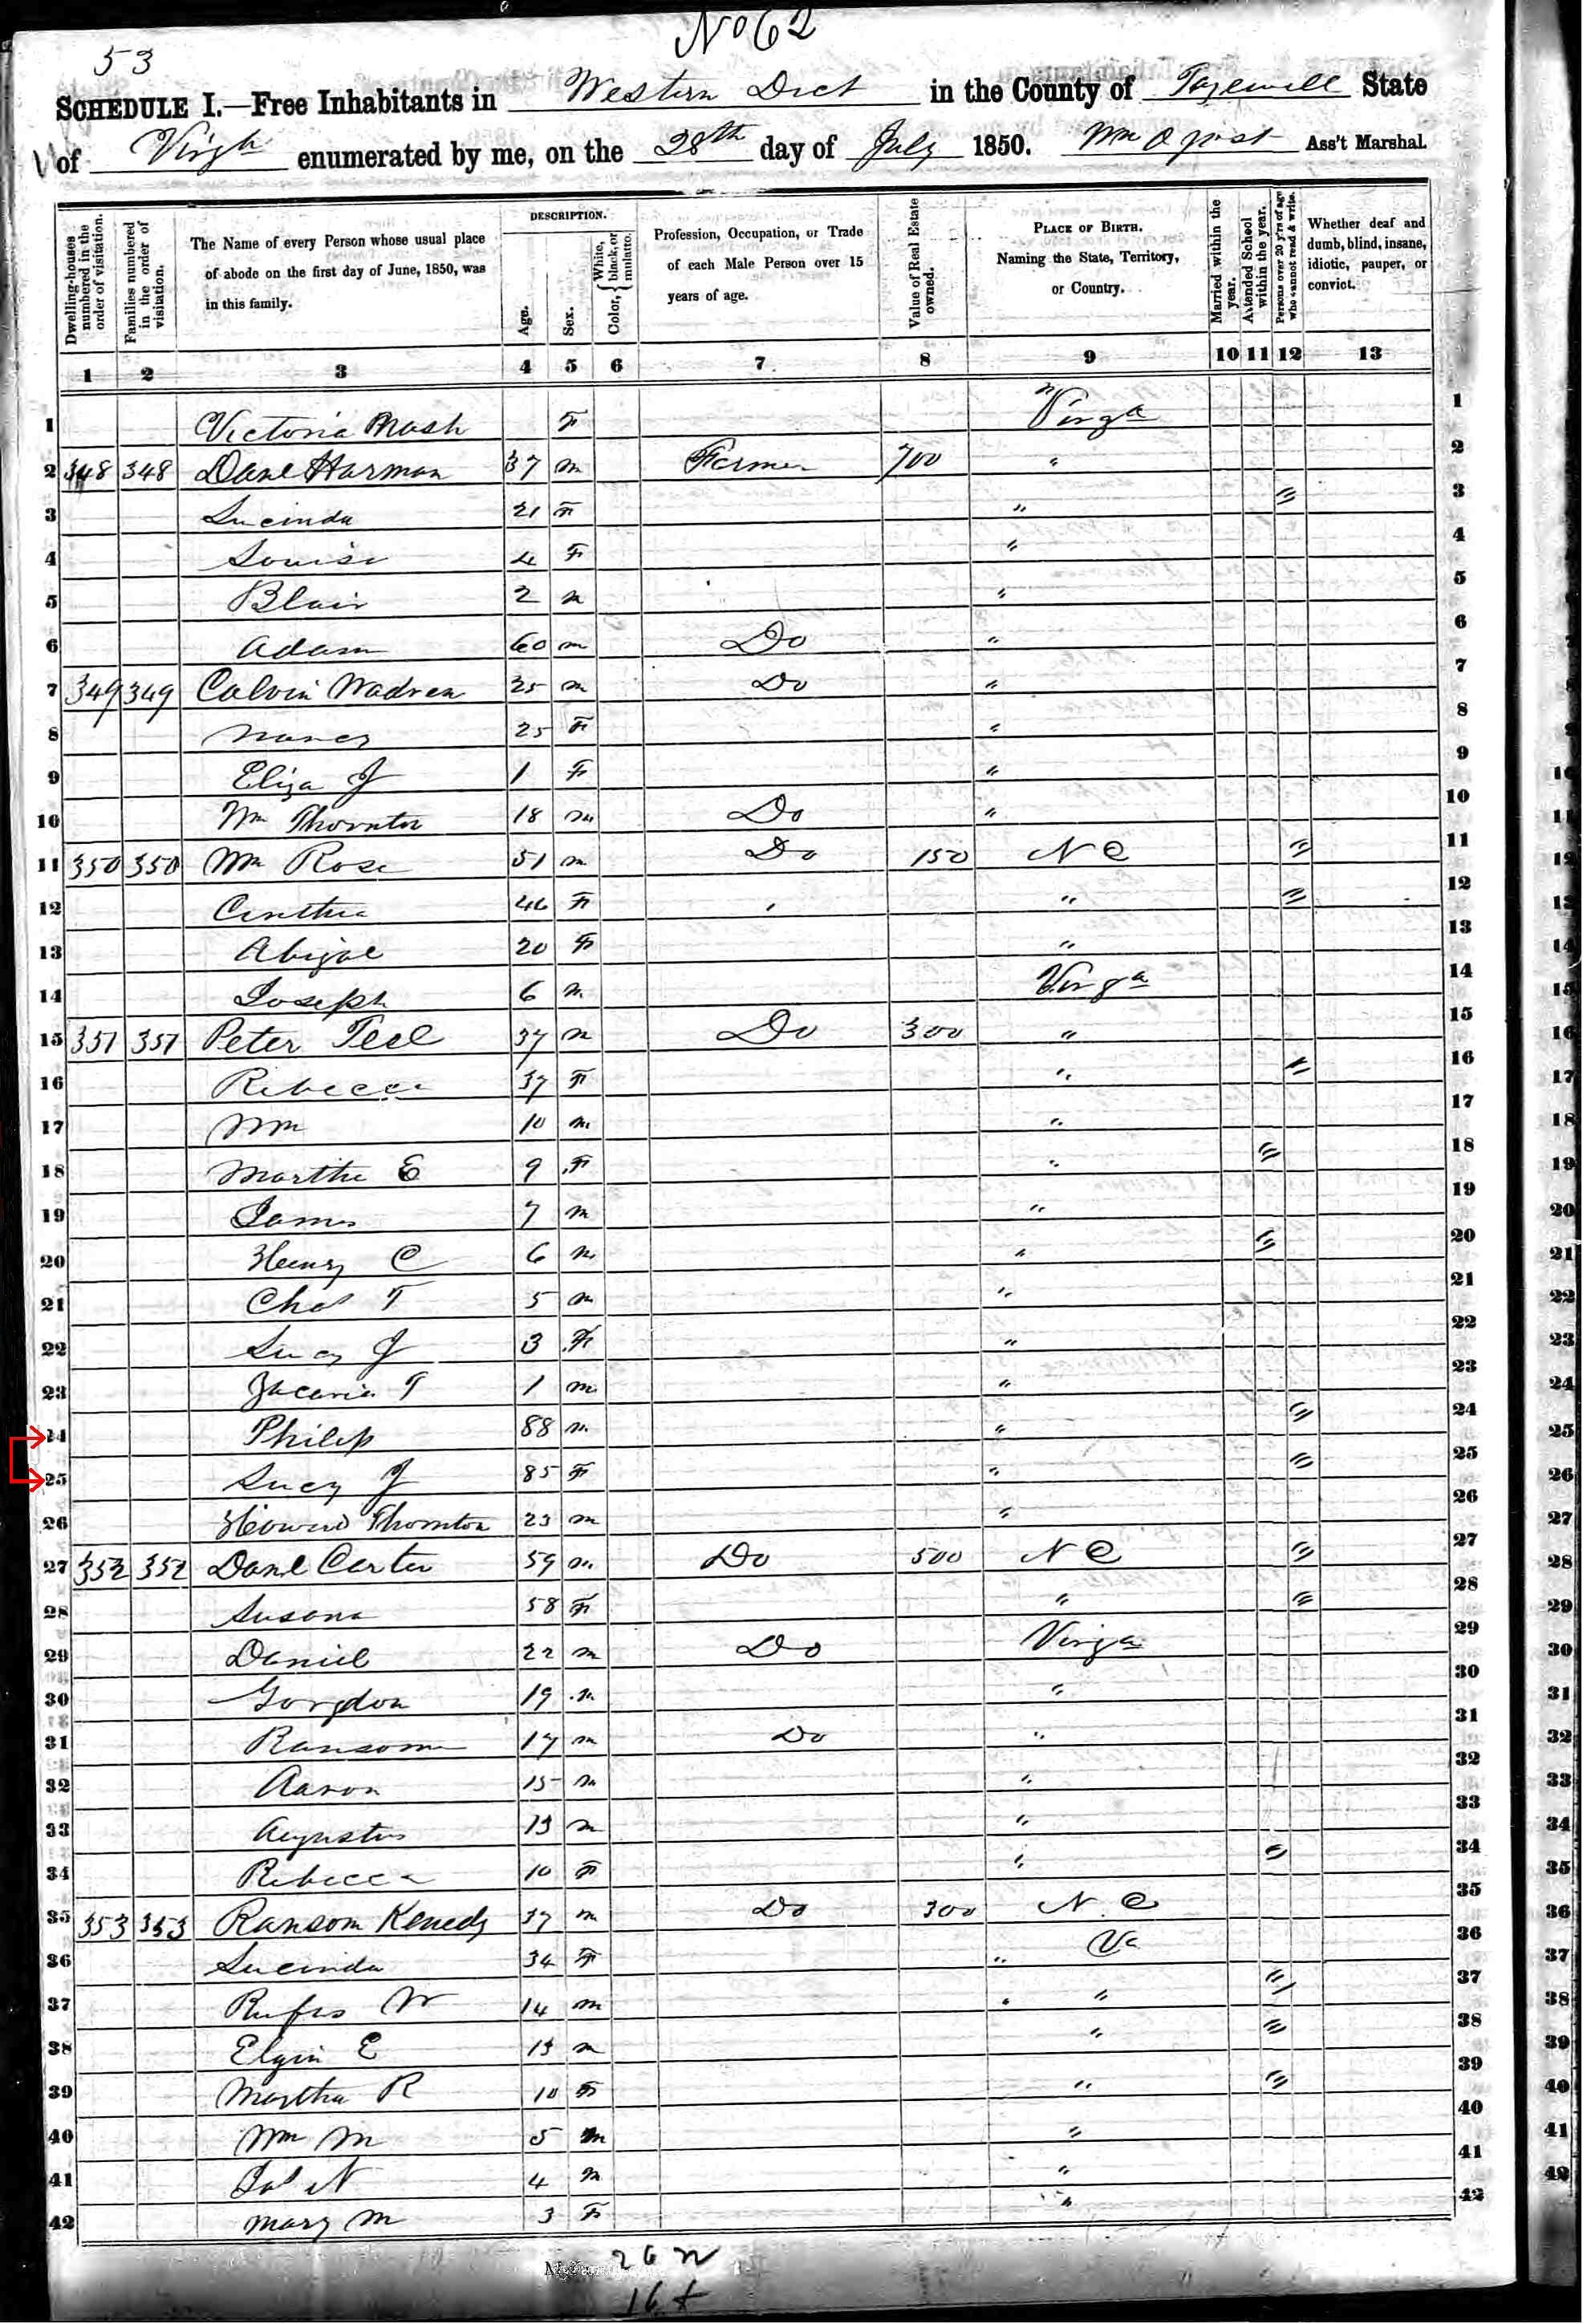 53
No 62
SCHEDULE I.—Free Inhabitants in Western Dict in the County of Tazewell State
of Virga enumerated by me, on the 28th day of July 1850. Wm O Yost Ass't Marshal.
Dwelling-houses numbered in the order of visitation.
Families numbered in the order of visitation.
The Name of every Person whose usual place of abode on the first day of June, 1850, was in this family.
DESCRIPTION.
Age.
Sex.
Color, { White, black, or mulatto.
Profession, Occupation, or Trade of each Male Person over 15 years of age.
Value of Real Estate owned.
PLACE OF BIRTH. Naming the State, Territory, or Country.
Married within the year.
Attended School within the year.
Persons over 20 y'rs of age who cannot read & write.
Whether deaf and dumb, blind, insane, idiotic, pauper, or convict.
1 2 3 4 5 6 7 8 9 10 11 12 13
1 Victoria Mash F Virga 1
2 348 348 Danl Harman 37 m Farmer 700 " 2
3 Lucinda 21 F " // 3
4 Louisa 4 F " 4
5 Blair 2 m " 5
6 Adam 60 m Do " 6
7 349 349 Calvin Wadren 25 m Do " 7
8 Nancy 25 F " 8
9 Eliza J 1 F " 9
10 Wm Thornton 18 m Do " 10
11 350 350 Wm Rose 51 m Do 150 N C // 11
12 Cinthia 46 F " // 12
13 Abigal 20 F " 13
14 Joseph 6 m Virga 14
15 351 351 Peter Teel 37 m Do 300 " 15
16 Rebecca 37 F " // 16
17 Wm 10 m " 17
18 Martha E 9 F " // 18
19 James 7 m " 19
20 Henry C 6 m " // 20
21 Chas T 5 m " 21
22 Lucy J 3 F " 22
23 Zacaria T 1 m " 23
24 Philip 88 m " // 24
25 Lucy J 85 F " // 25
26 Howard Thornton 23 m " 26
27 352 352 Danl Carter 59 m Do 500 N C // 27
28 Susana 58 F " // 28
29 Daniel 22 m Do Virga 29
30 Gordon 19 m " 30
31 Ransom 17 m Do " 31
32 Aaron 15 m " 32
33 Augustus 13 m " 33
34 Rebecca 10 F " // 34
35 353 353 Ransom Kenedy 37 m Do 300 N. C 35
36 Lucinda 34 F " Va 36
37 Rufus W 14 m " // 37
38 Elgin E 13 m " // 38
39 Martha R 10 F " // 39
40 Wm M 5 m " 40
41 Jas N 4 m " 41
42 Mary M 3 F " 42
26 m
16 f